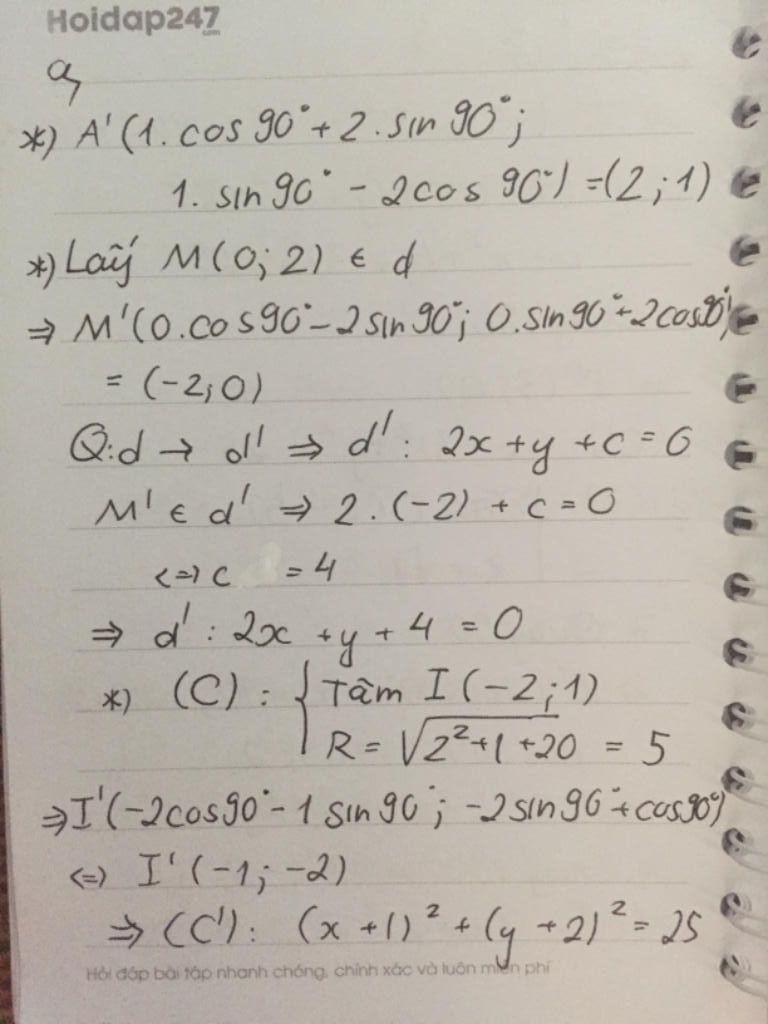 Hoidap247
.com
a,
*) A'(1.cos 90° + 2.sin 90°;
1.sin 90° - 2cos 90°) = (2;1)
*) Lấy M(0;2) ∈ d
⇒ M'(0.cos90° - 2sin 90°; 0.sin90° + 2cos90°)
= (-2;0)
Q:d → d' ⇒ d': 2x + y + c = 0
M' ∈ d' ⇒ 2.(-2) + c = 0
<=> c = 4
⇒ d': 2x + y + 4 = 0
*) (C): { Tâm I(-2;1)
R = √(2²+1+20) = 5
⇒ I'(-2cos90° - 1sin 90°; -2sin90° + cos90°)
<=> I'(-1; -2)
⇒ (C'): (x + 1)² + (y + 2)² = 25
Hỏi đáp bài tập nhanh chóng, chính xác và luôn miễn phí